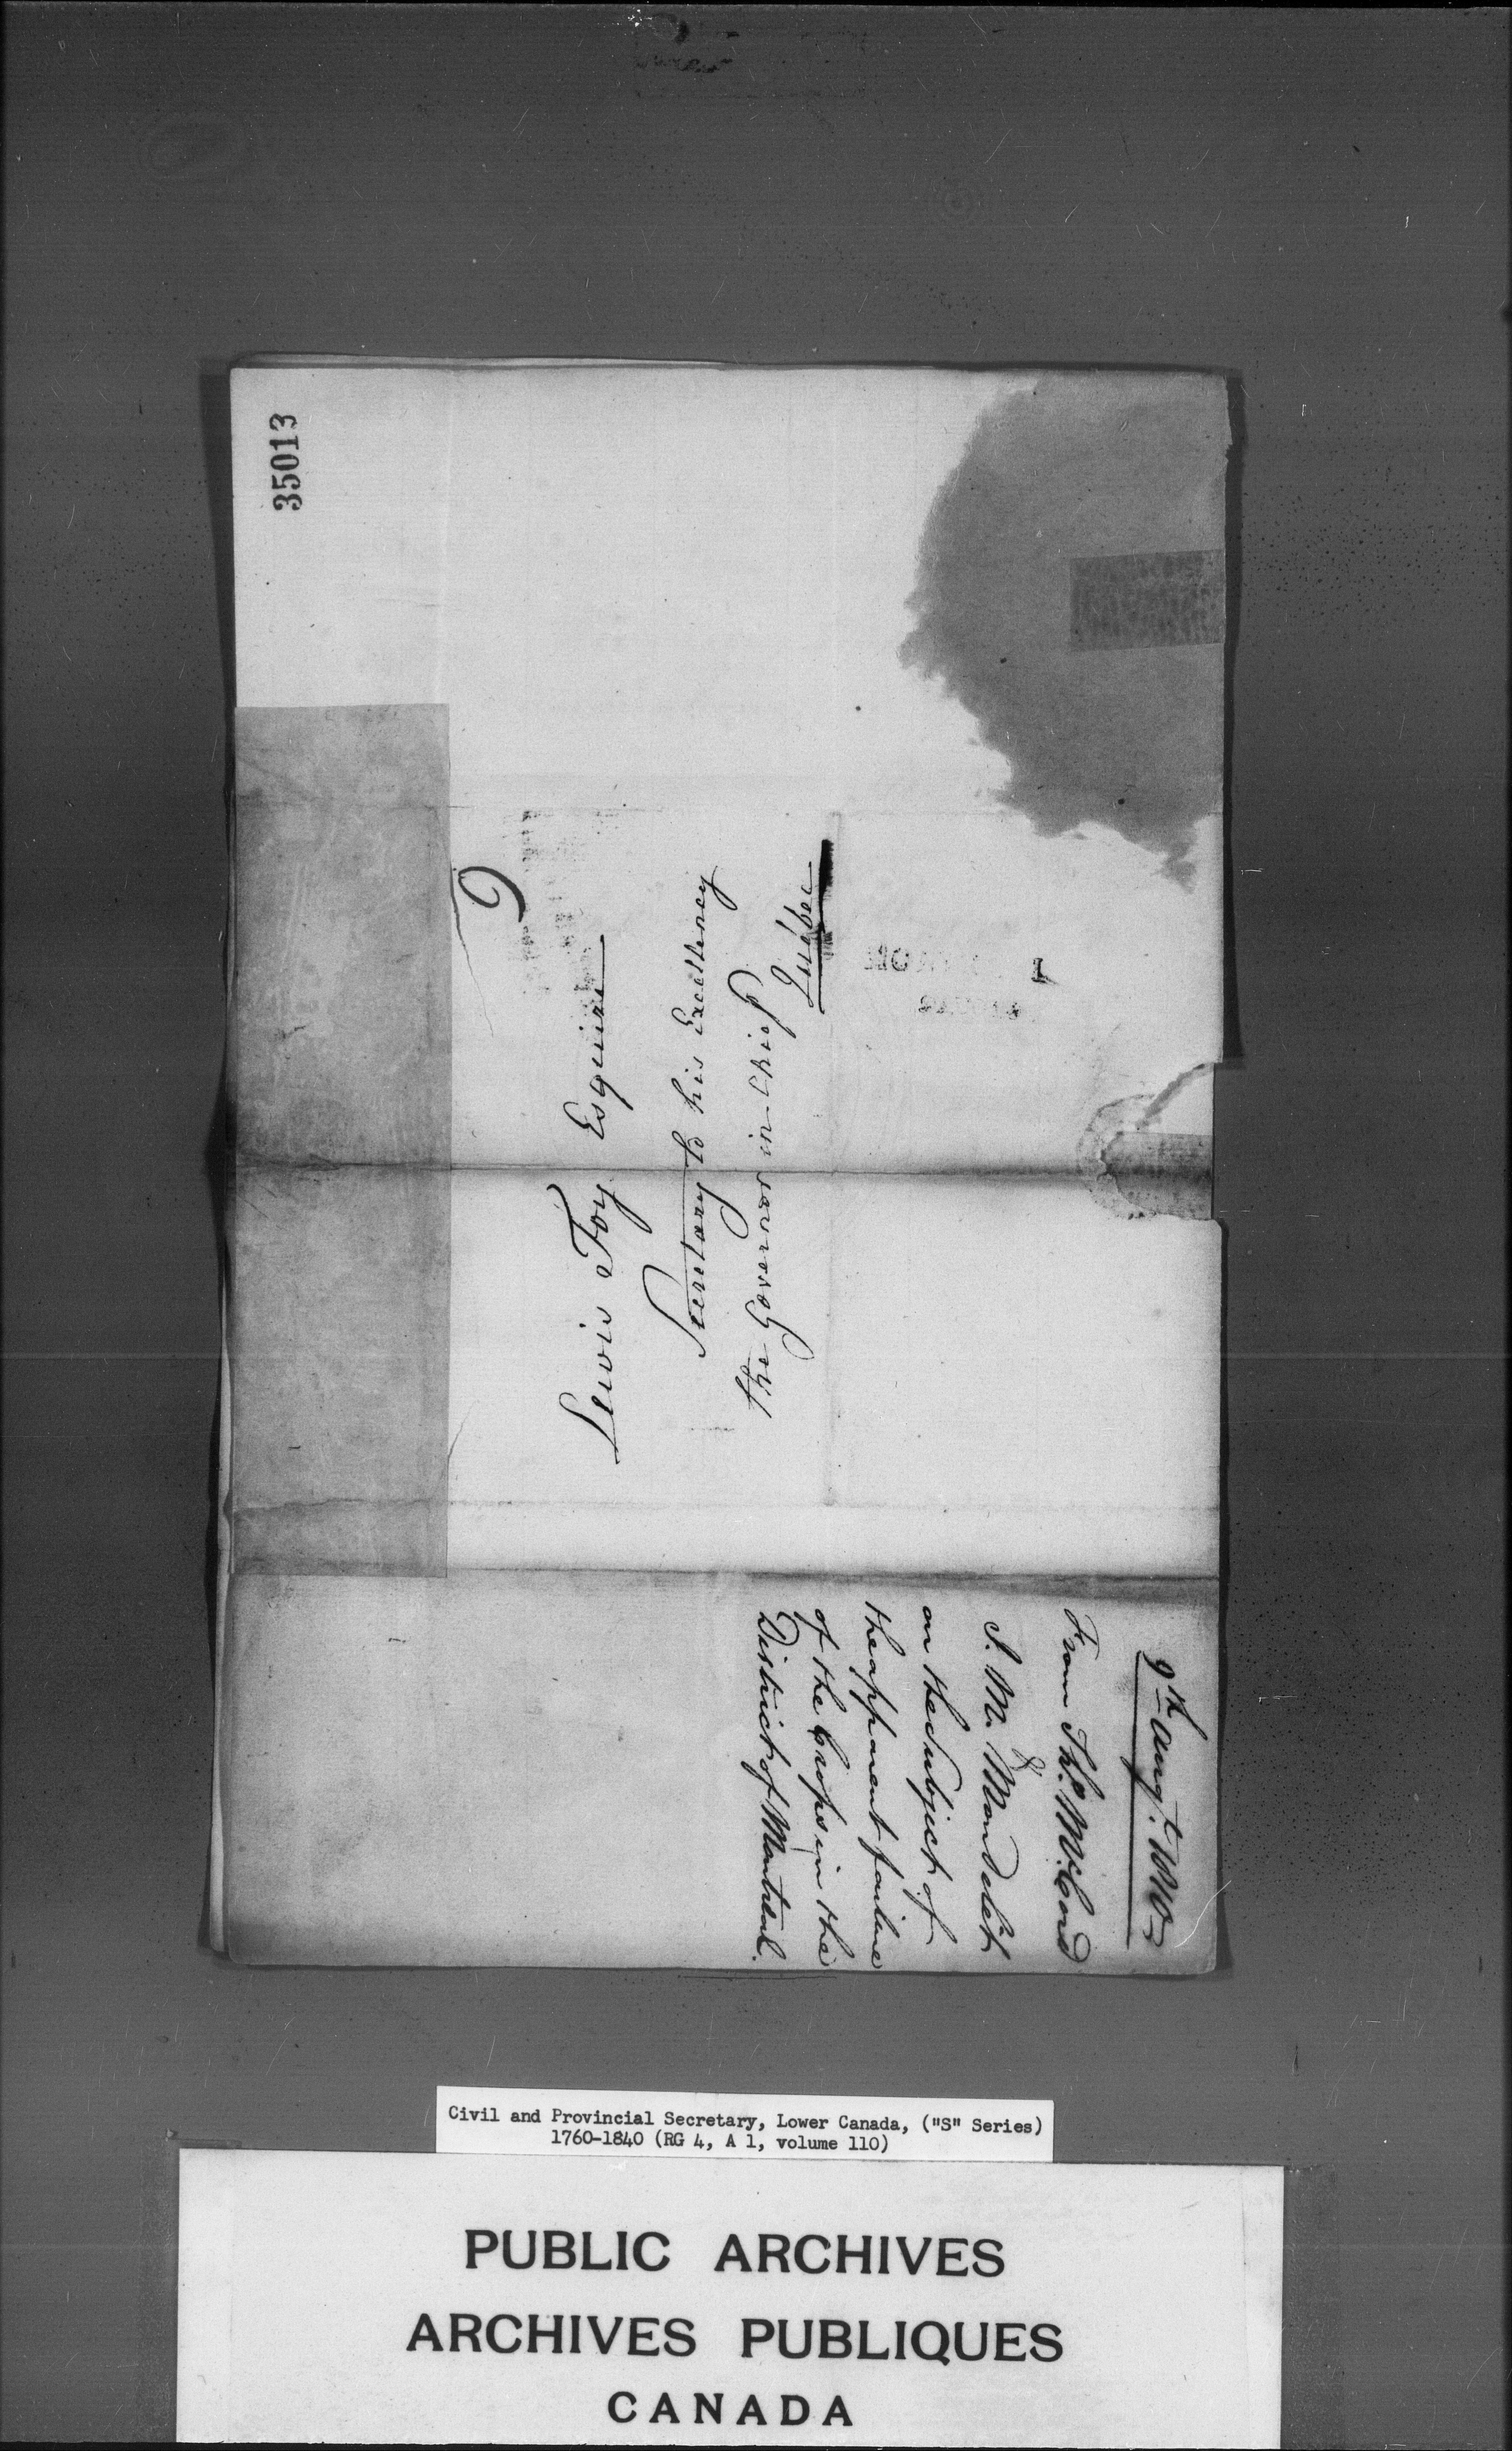 35013
9
Lewis Foy Esquire
Secretary to his Excellency
the Governor in Chief
Quebec
9th Augt. 1810
From Ths. McCord
&
J. M. Mondelet
on the Subject of
the apparent failure
of the Crops in the
District of Montreal.
Civil and Provincial Secretary, Lower Canada, ("S" Series)
1760-1840 (RG 4, A 1, volume 110)
PUBLIC ARCHIVES
ARCHIVES PUBLIQUES
CANADA